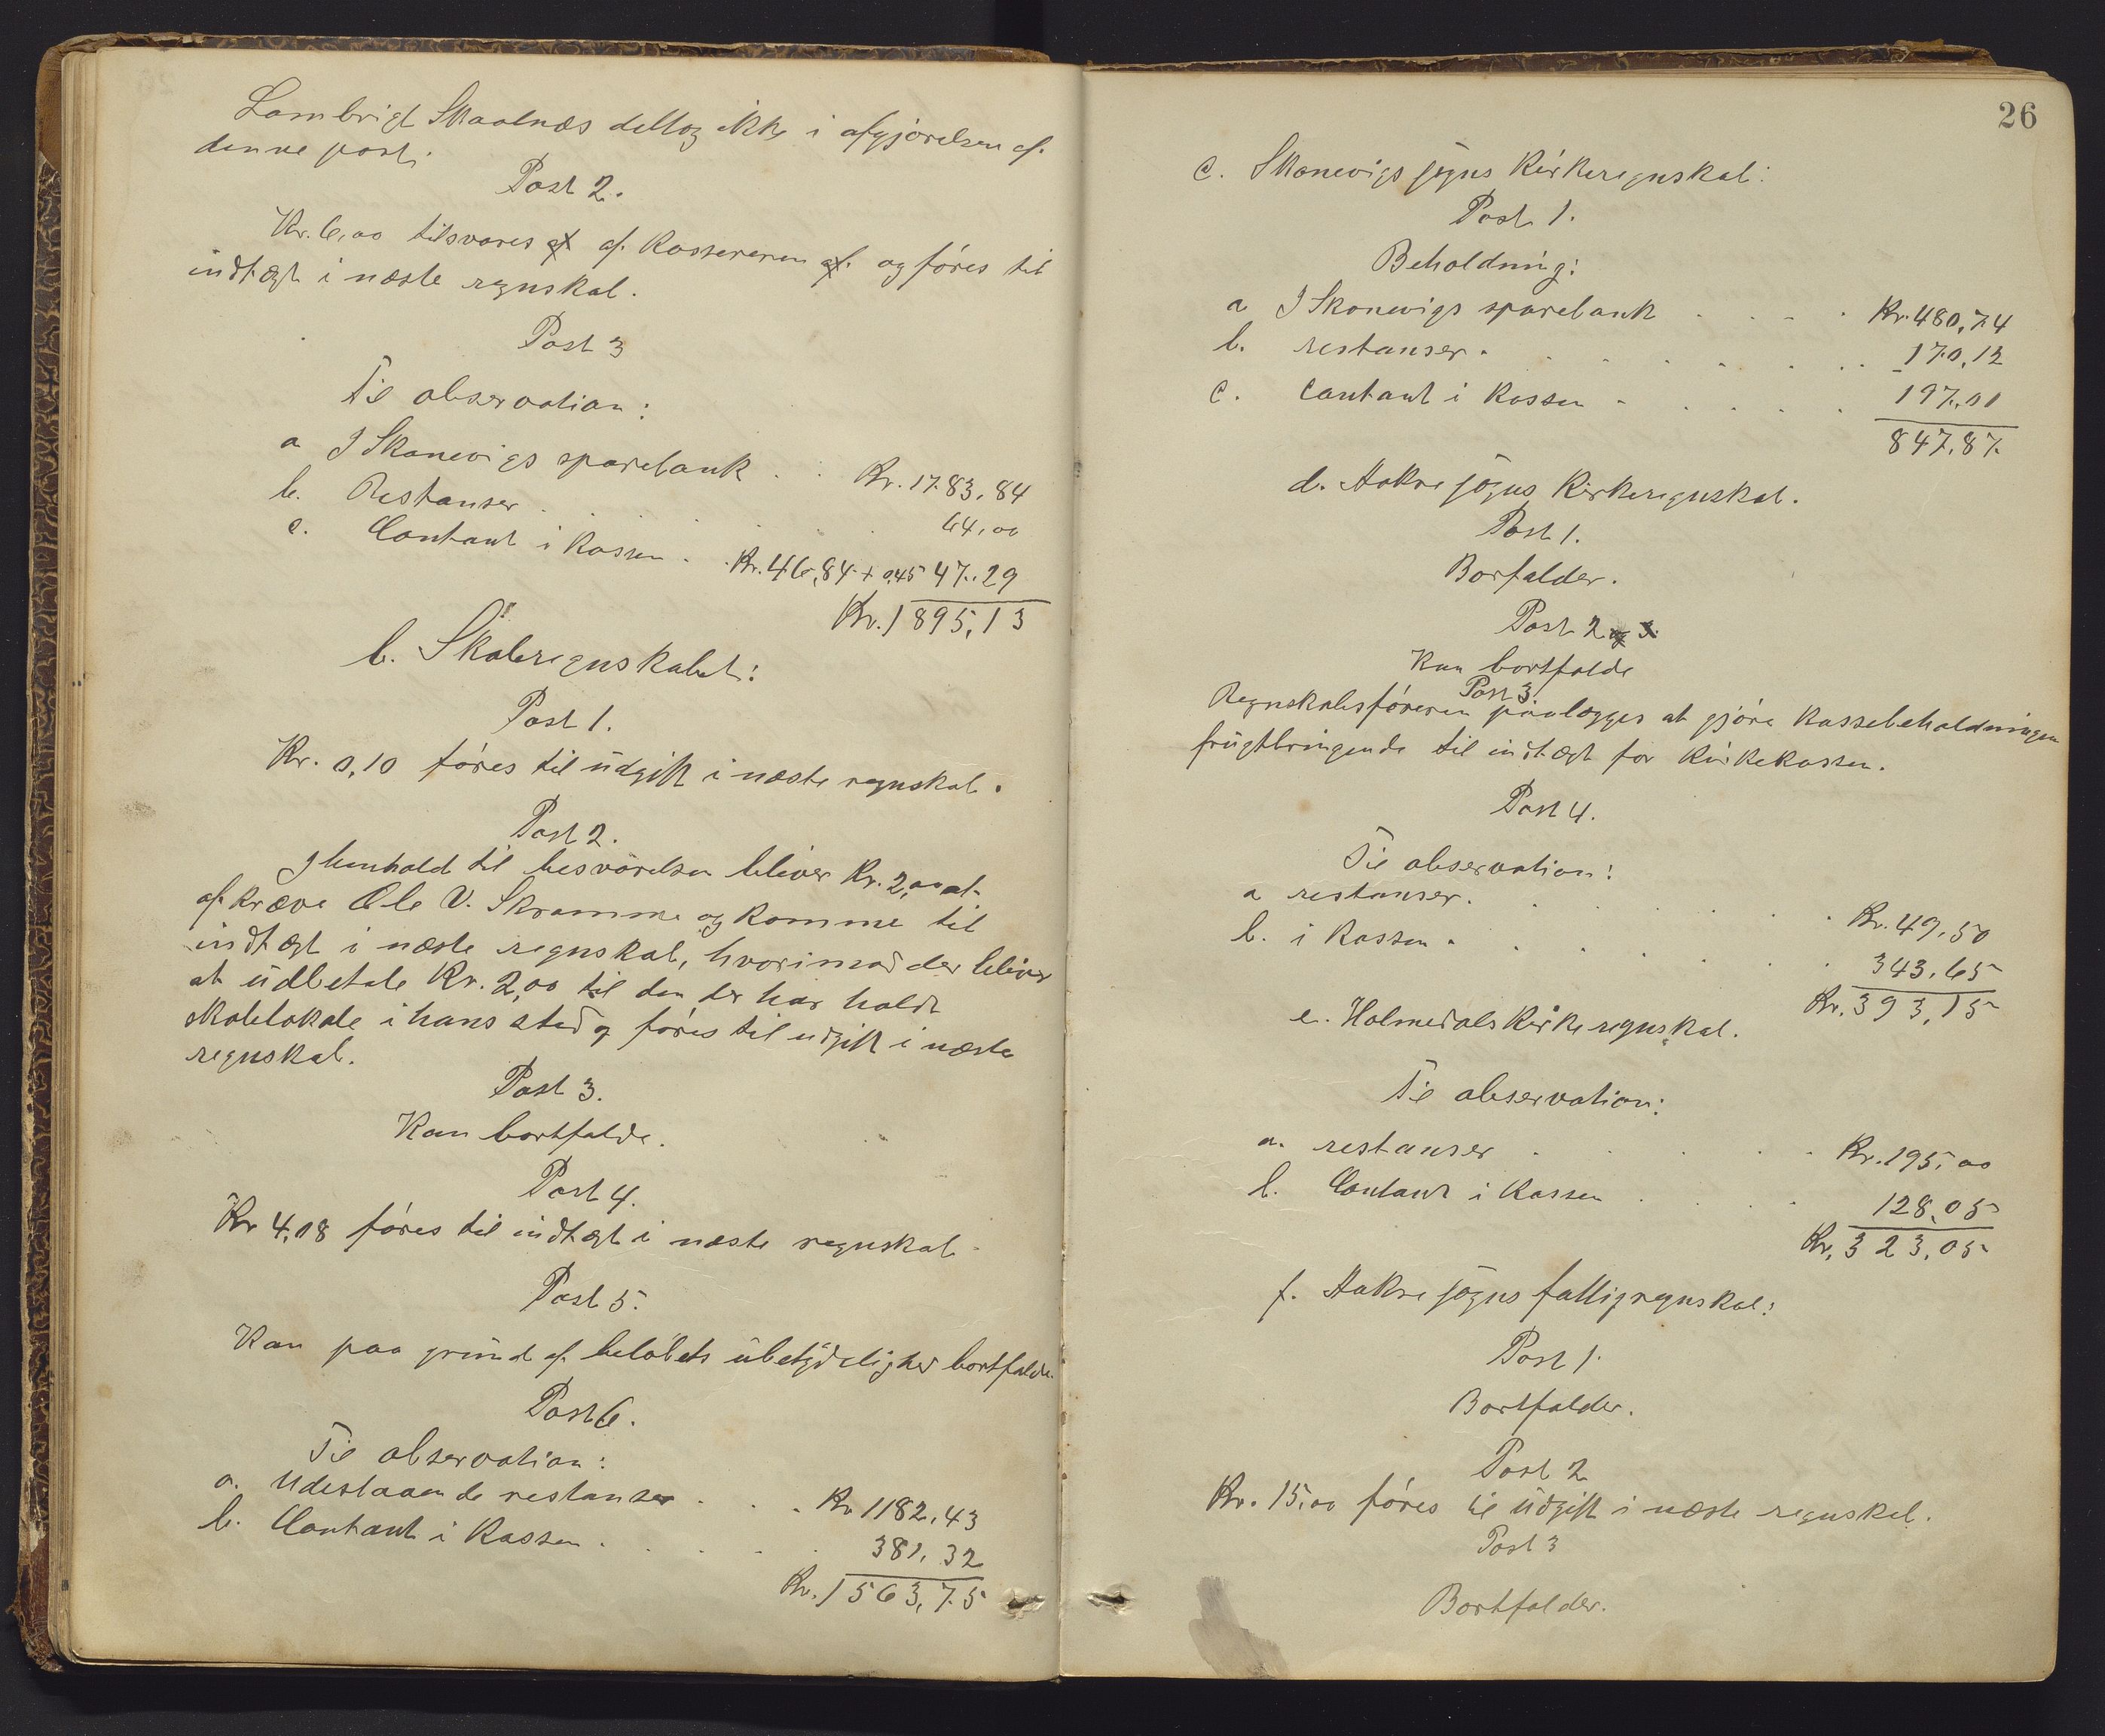 Lambrigt Skaalnæs deltog ikke i afgjörelsen af
denne post.
Post 2.
Kr. 6,00 tilsvares af af kassereren af og föres til
indtægt i næste regnskab.
Post 3
Til observation:
a I Skonevigs sparebank . . Kr. 1783,84
b. Restanser . . . . . 64,00
c. Contant i kassen . Kr. 46,84 + 0,45 47,29
Kr. 1895,13
b. Skoleregnskabet:
Post 1.
Kr. 0,10 föres til udgift i næste regnskab.
Post 2.
I henhold til besvarelsen bliver Kr. 2,00 at
afkræve Ole V. Skramme og komme til
indtægt i næste regnskab, hvorimod der bliver
at udbetale Kr. 2,00 til den der har holdt
skolelokale i hans sted og föres til udgift i næste
regnskab.
Post 3.
Kan bortfalde.
Post 4.
Kr 4,08 föres til indtægt i næste regnskab.
Post 5.
Kan paa grund af belöbets ubetydelighed bortfalde.
Post 6.
Til observation:
a. Udestaaende restanser . . . Kr 1182,43
b. Contant i Kassen . . . . 381,32
Kr. 1563,75
26
c. Skonevigs sogns Kirkeregnskab:
Post 1.
Beholdning:
a I Skonevigs sparebank . . . . Kr. 480,74
b. restanser . . . . . . . 170,12
c. Contant i Kassen . . . . . 197,01
847,87
d. Aakre sogns Kirkeregnskab.
Post 1.
Borfalder.
Post 2 og 3.
Kan bortfalde
Post 3.
Regnskabsföreren paalægges at gjöre Kassebeholdningen
frugtbringende til indtægt for Kirkekassen.
Post 4.
Til observation:
a restanser . . . . . . . Kr. 49,50
b. i Kassen . . . . . . . 343,65
Kr. 393,15
e. Holmedals Kirkeregnskab.
Til observation:
a. restanser . . . . . Kr. 195,00
b. Contant i Kassen . . . . 128,05
Kr. 323,05
f. Aakre sogns fattigregnskab:
Post 1.
Bortfalder.
Post 2
Kr. 15,00 föres til udgift i næste regnskab.
Post 3
Bortfalder.